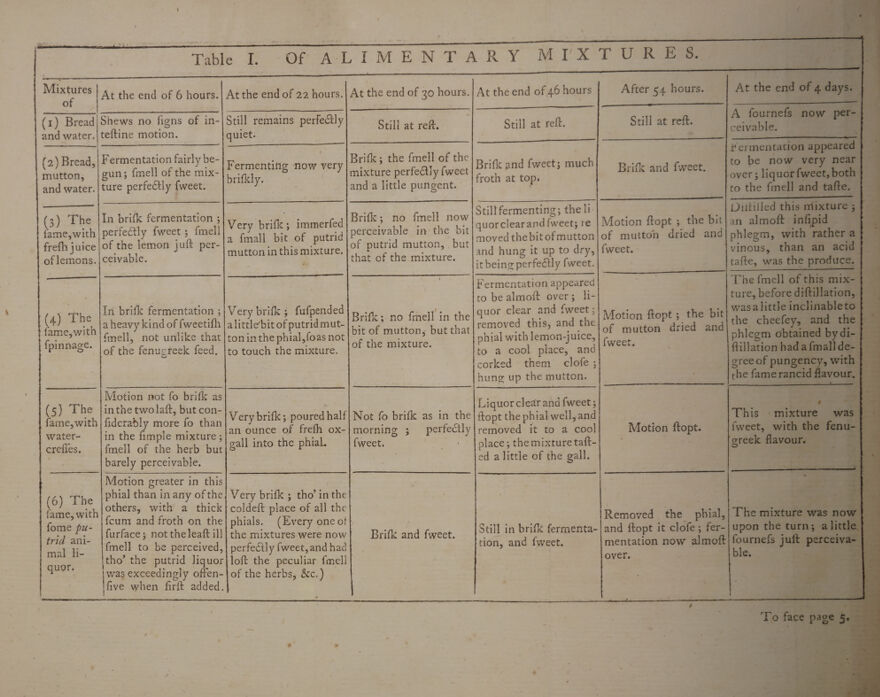 Table I. Of ALIMENTARY MIXTURES.
Mixtures
of
At the end of 6 hours.
At the end of 22 hours.
At the end of 30 hours.
At the end of 46 hours
After 54 hours.
At the end of 4 days.
(1) Bread
and water.
Shews no ſigns of in-
teſtine motion.
Still remains perfectly
quiet.
Still at reſt.
Still at reſt.
Still at reſt.
A ſourneſs now per-
ceivable.
(2) Bread,
mutton,
and water.
Fermentation fairly be-
gun; ſmell of the mix-
ture perfectly ſweet.
Fermenting now very
briſkly.
Briſk; the ſmell of the
mixture perfectly ſweet
and a little pungent.
Briſk and ſweet; much
froth at top.
Briſk and ſweet.
Fermentation appeared
to be now very near
over; liquor ſweet, both
to the ſmell and taſte.
(3) The
ſame, with
freſh juice
of lemons.
In briſk fermentation;
perfectly ſweet; ſmell
of the lemon juſt per-
ceivable.
Very briſk; immerſed
a ſmall bit of putrid
mutton in this mixture.
Briſk; no ſmell now
perceivable in the bit
of putrid mutton, but
that of the mixture.
Still fermenting; the li-
quor clear and ſweet; re
moved the bit of mutton
and hung it up to dry,
it being perfectly ſweet.
Motion ſtopt; the bit
of mutton dried and
ſweet.
Diſtilled this mixture;
an almoſt inſipid
phlegm, with rather a
vinous, than an acid
taſte, was the produce.
(4) The
ſame, with
ſpinnage.
In briſk fermentation;
a heavy kind of ſweetiſh
ſmell, not unlike that
of the fenugreek ſeed.
Very briſk; ſuſpended
a little bit of putrid mut-
ton in the phial, ſo as not
to touch the mixture.
Briſk; no ſmell in the
bit of mutton, but that
of the mixture.
Fermentation appeared
to be almoſt over; li-
quor clear and ſweet;
removed this, and the
phial with lemon-juice,
to a cool place, and
corked them cloſe;
hung up the mutton.
Motion ſtopt; the bit
of mutton dried and
ſweet.
The ſmell of this mix-
ture, before diſtillation,
was a little inclinable to
the cheeſey, and the
phlegm obtained by di-
ſtillation had a ſmall de-
gree of pungency, with
the ſame rancid flavour.
(5) The
ſame, with
water-
creſſes.
Motion not ſo briſk as
in the two laſt, but con-
ſiderably more ſo than
in the ſimple mixture;
ſmell of the herb but
barely perceivable.
Very briſk; poured half
an ounce of freſh ox-
gall into the phial.
Not ſo briſk as in the
morning; perfectly
ſweet.
Liquor clear and ſweet;
ſtopt the phial well, and
removed it to a cool
place; the mixture taſt-
ed a little of the gall.
Motion ſtopt.
This mixture was
ſweet, with the fenu-
greek flavour.
(6) The
ſame, with
ſome pu-
trid ani-
mal li-
quor.
Motion greater in this
phial than in any of the
others, with a thick
ſcum and froth on the
ſurface; not the leaſt ill
ſmell to be perceived,
tho' the putrid liquor
was exceedingly offen-
ſive when firſt added.
Very briſk; tho' in the
coldeſt place of all the
phials. (Every one of
the mixtures were now
perfectly ſweet, and had
loſt the peculiar ſmell
of the herbs, &c.)
Briſk and ſweet.
Still in briſk fermenta-
tion, and ſweet.
Removed the phial,
and ſtopt it cloſe; fer-
mentation now almoſt
over.
The mixture was now
upon the turn; a little
ſourneſs juſt perceiva-
ble.
To face page 5.